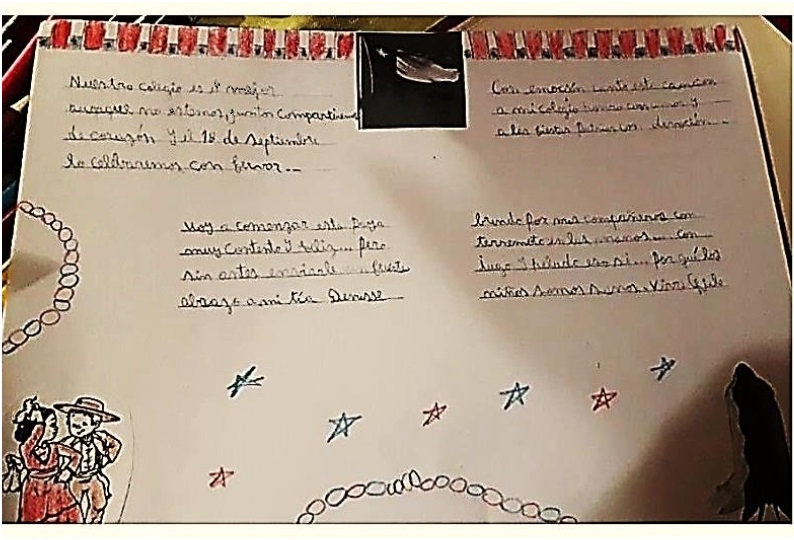 Nuestro colegio es el mejor
aunque no estemos juntos compartiremos
de corazón y el 18 de septiembre
lo celebraremos con fervor...
Con emoción canto esta canción
a mi colegio con amor y
a las fiestas Patrias con devoción...
Voy a comenzar esta Paya
muy contento y feliz... pero
sin antes enviarle un fuerte
abrazo a mi tía Denisse
brindo por mis compañeros con
terremoto en las manos... con
jugo y helado eso si... por qué los
niños somos sanos. Viva Chile